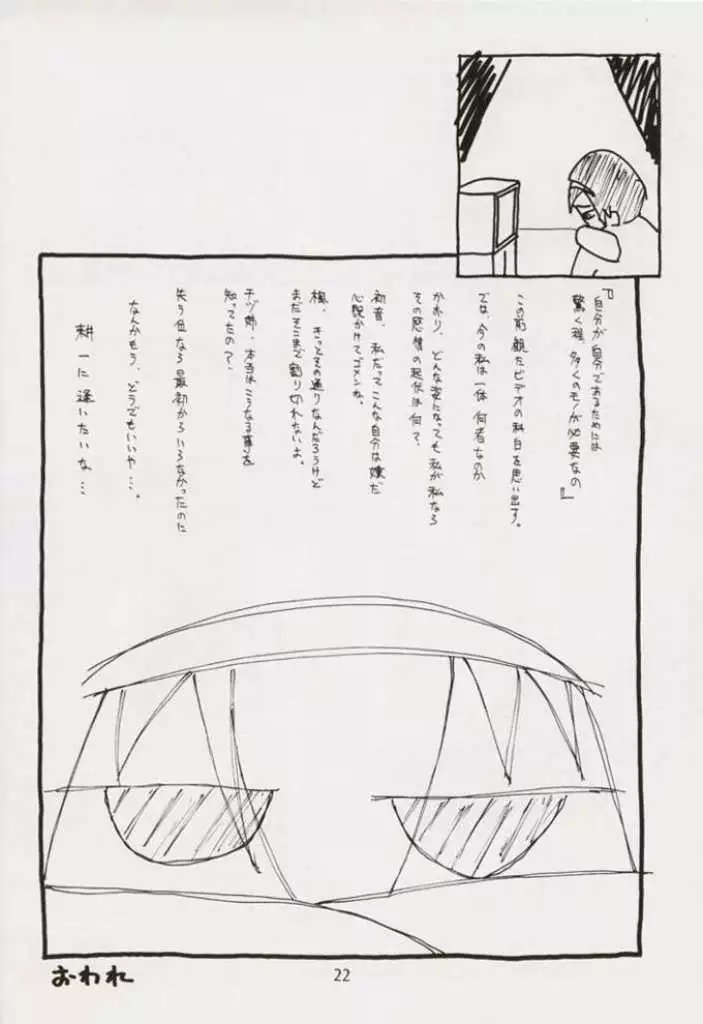 『自分が自分であるためには
驚く程、多くのモノが必要なの』
この前観たビデオの科白を思い出す。
では、今の私は一体何者なのか
かおり、どんな姿になっても私が私なら
その感情の起伏は何て、
初音、私だってこんな自分は嫌だ
心配かけてゴメンね。
楓、きっとその通りなんだろうけど
まだそこまで割り切れないよ。
チヅ姉、本当はこうなる事を
知ってたの?、
失う位なら最初からいらなかったのに
なんかもう、どうでもいいや…。
耕一に逢いたいな…
おわれ
22